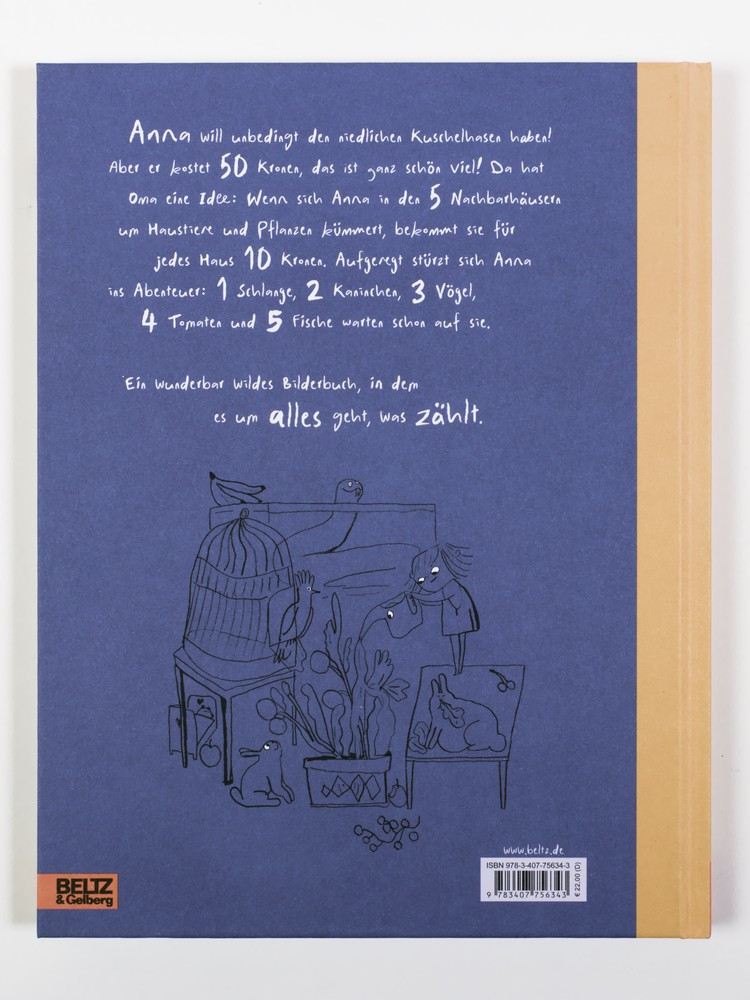 Anna will unbedingt den niedlichen Kuschelhasen haben!
Aber er kostet 50 Kronen, das ist ganz schön viel! Da hat
Oma eine Idee: Wenn sich Anna in den 5 Nachbarhäusern
um Haustiere und Pflanzen kümmert, bekommt sie für
jedes Haus 10 Kronen. Aufgeregt stürzt sich Anna
ins Abenteuer: 1 Schlange, 2 Kaninchen, 3 Vögel,
4 Tomaten und 5 Fische warten schon auf sie.
Ein wunderbar wildes Bilderbuch, in dem
es um alles geht, was zählt.
www.beltz.de
ISBN 978-3-407-75634-3
9 783407 756343
€ 22,00 (D)
BELTZ
& Gelberg